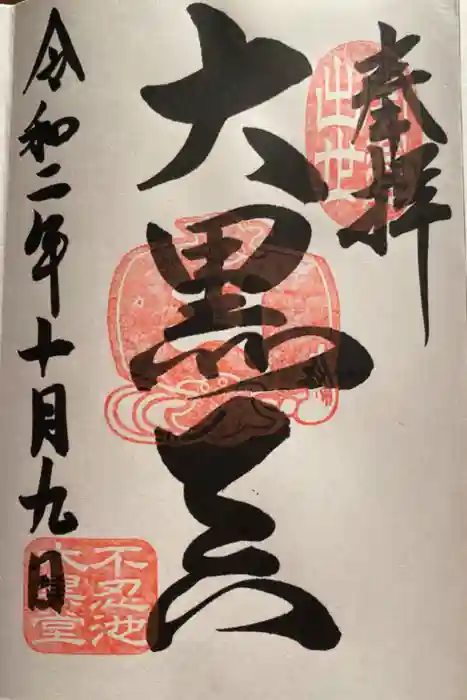 奉拝
出世
大黒天
令和二年十月九日
不忍池
大黒堂